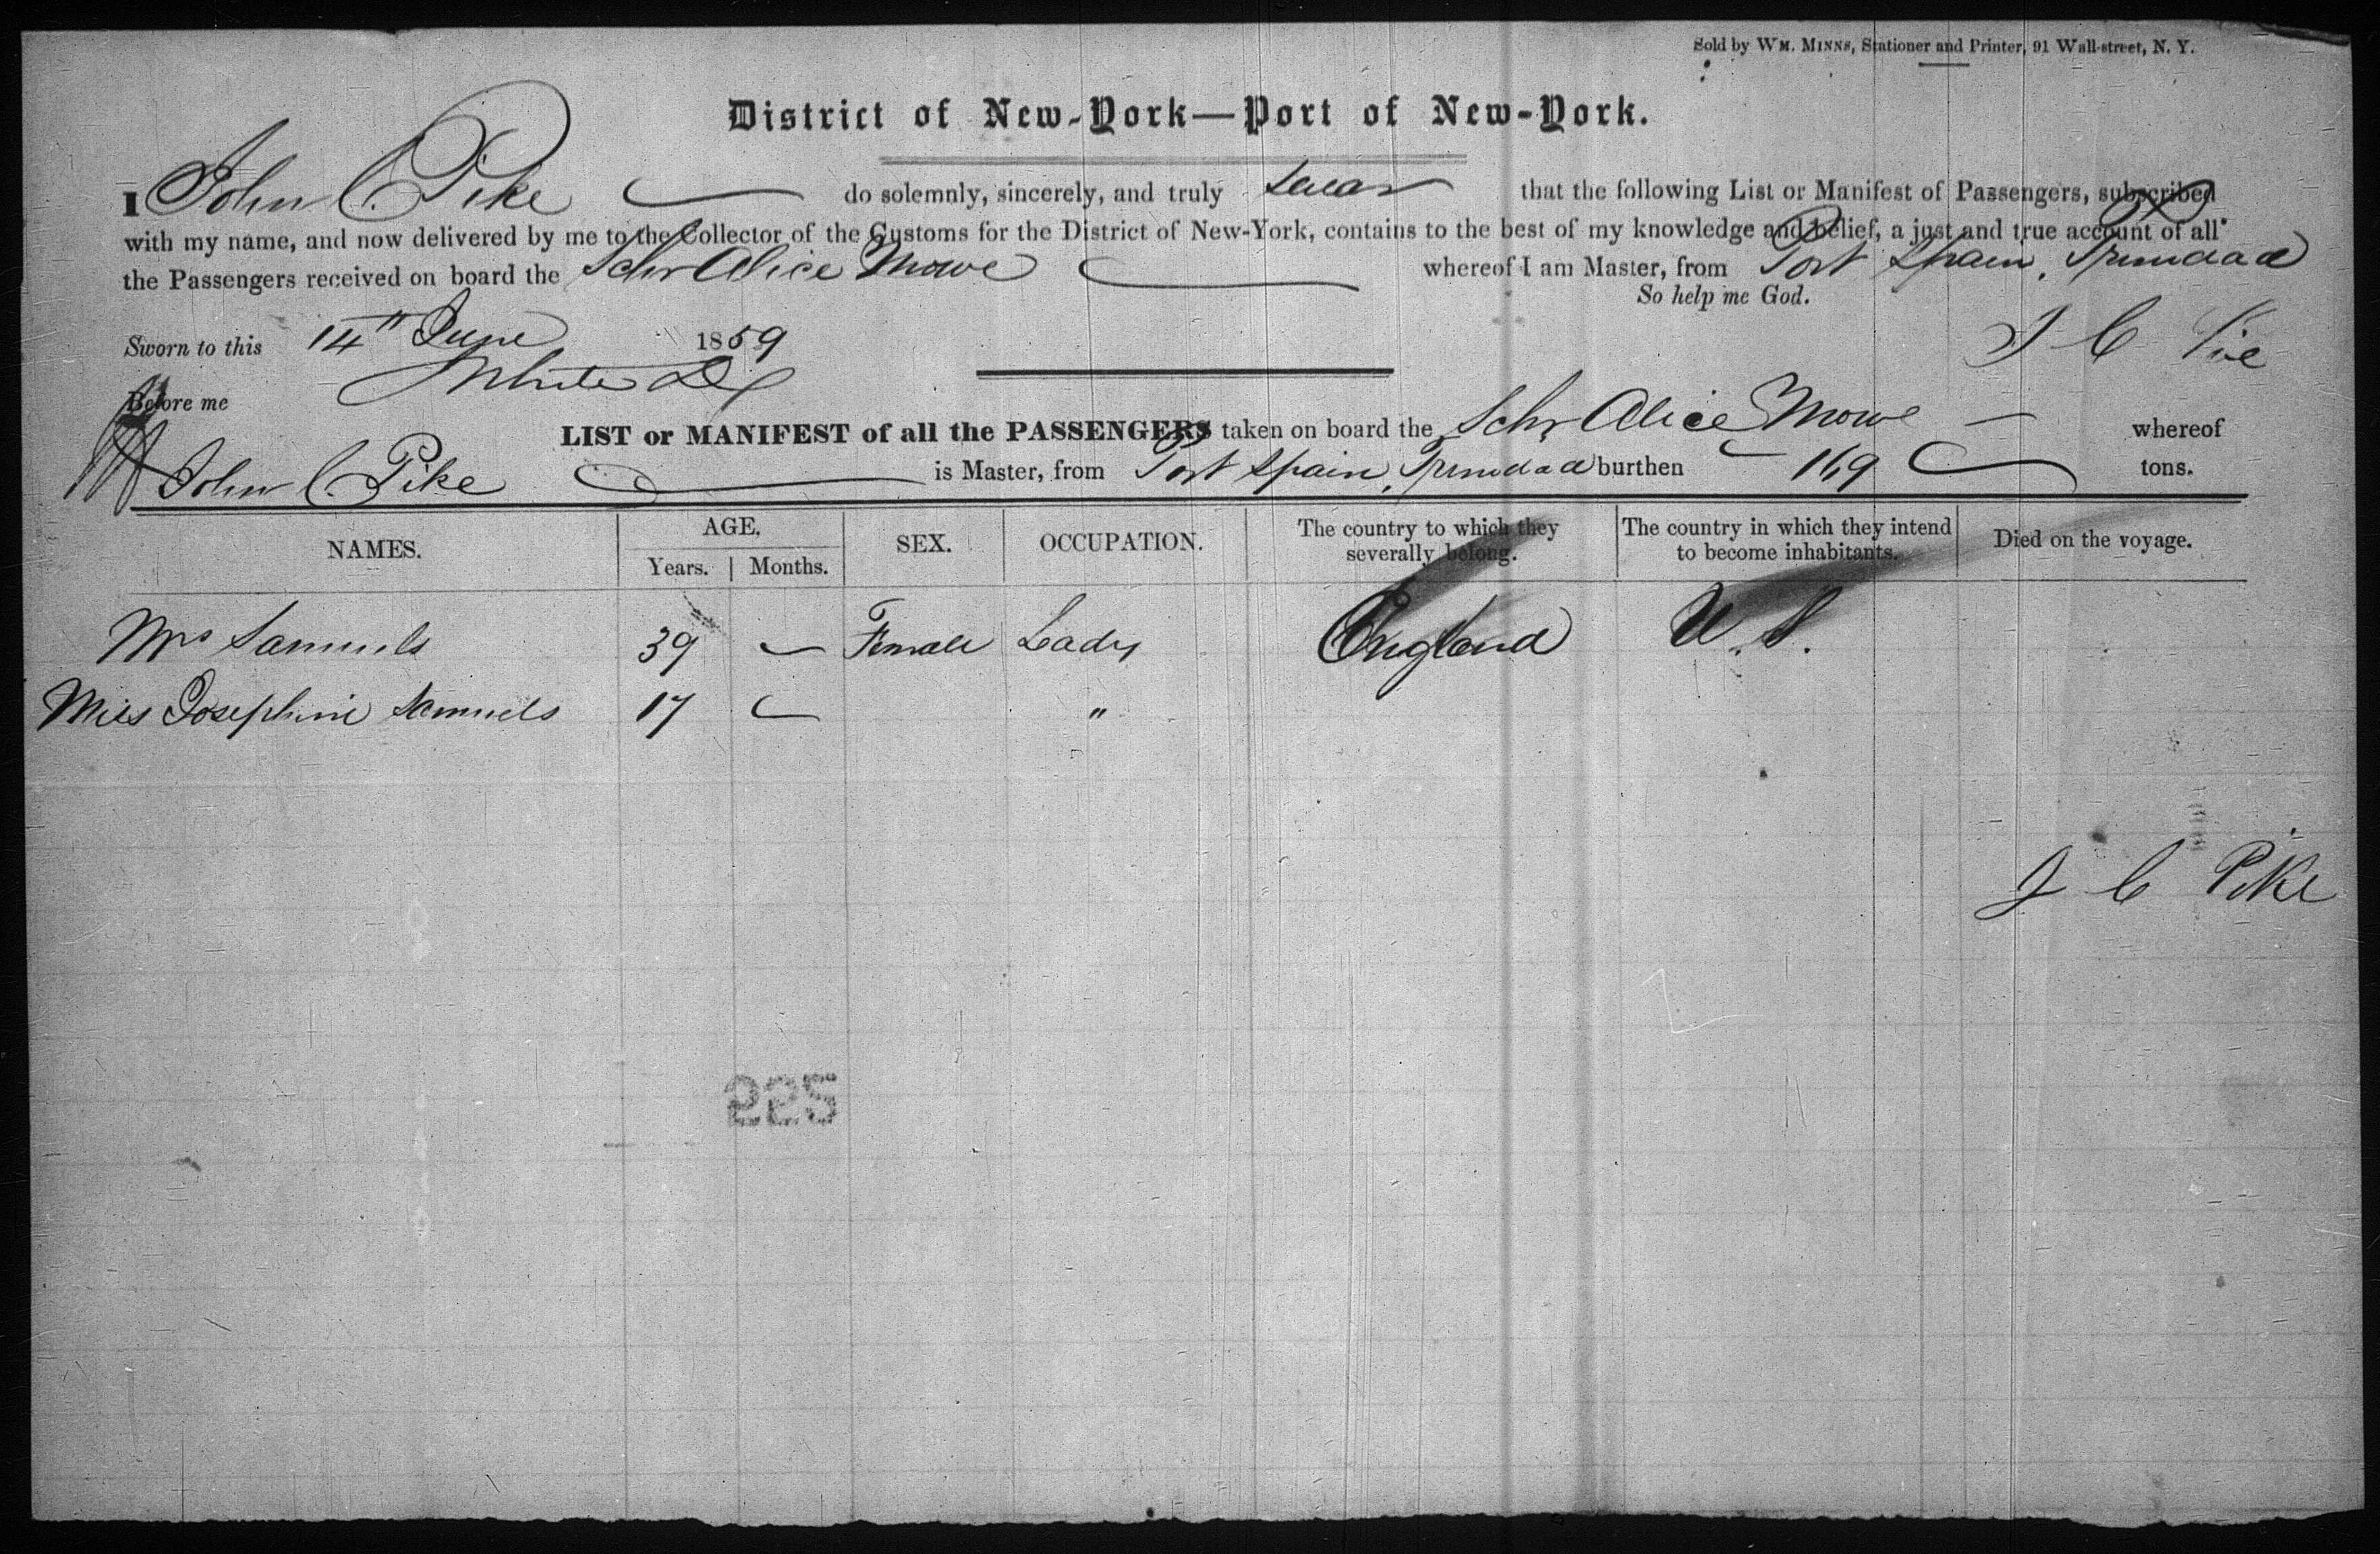 Sold by WM. MINNS, Stationer and Printer, 91 Wall-street, N. Y.
District of New-York—Port of New-York.
I John C. Pike do solemnly, sincerely, and truly swear that the following List or Manifest of Passengers, subscribed
with my name, and now delivered by me to the Collector of the Customs for the District of New-York, contains to the best of my knowledge and belief, a just and true account of all
the Passengers received on board the Schr Alice Mowe whereof I am Master, from Port Spain, Trinidad
So help me God.
Sworn to this 14th June 1859
J C Pike
Before me
LIST or MANIFEST of all the PASSENGERS taken on board the Schr Alice Mowe whereof
John C. Pike is Master, from Port Spain, Trinidad burthen 169 tons.
NAMES. AGE, Years. Months. SEX. OCCUPATION. The country to which they severally belong. The country in which they intend to become inhabitants. Died on the voyage.
Mrs Samuels 39 Female Lady England U.S.
Miss Josephine Samuels 17 "
J C Pike
225